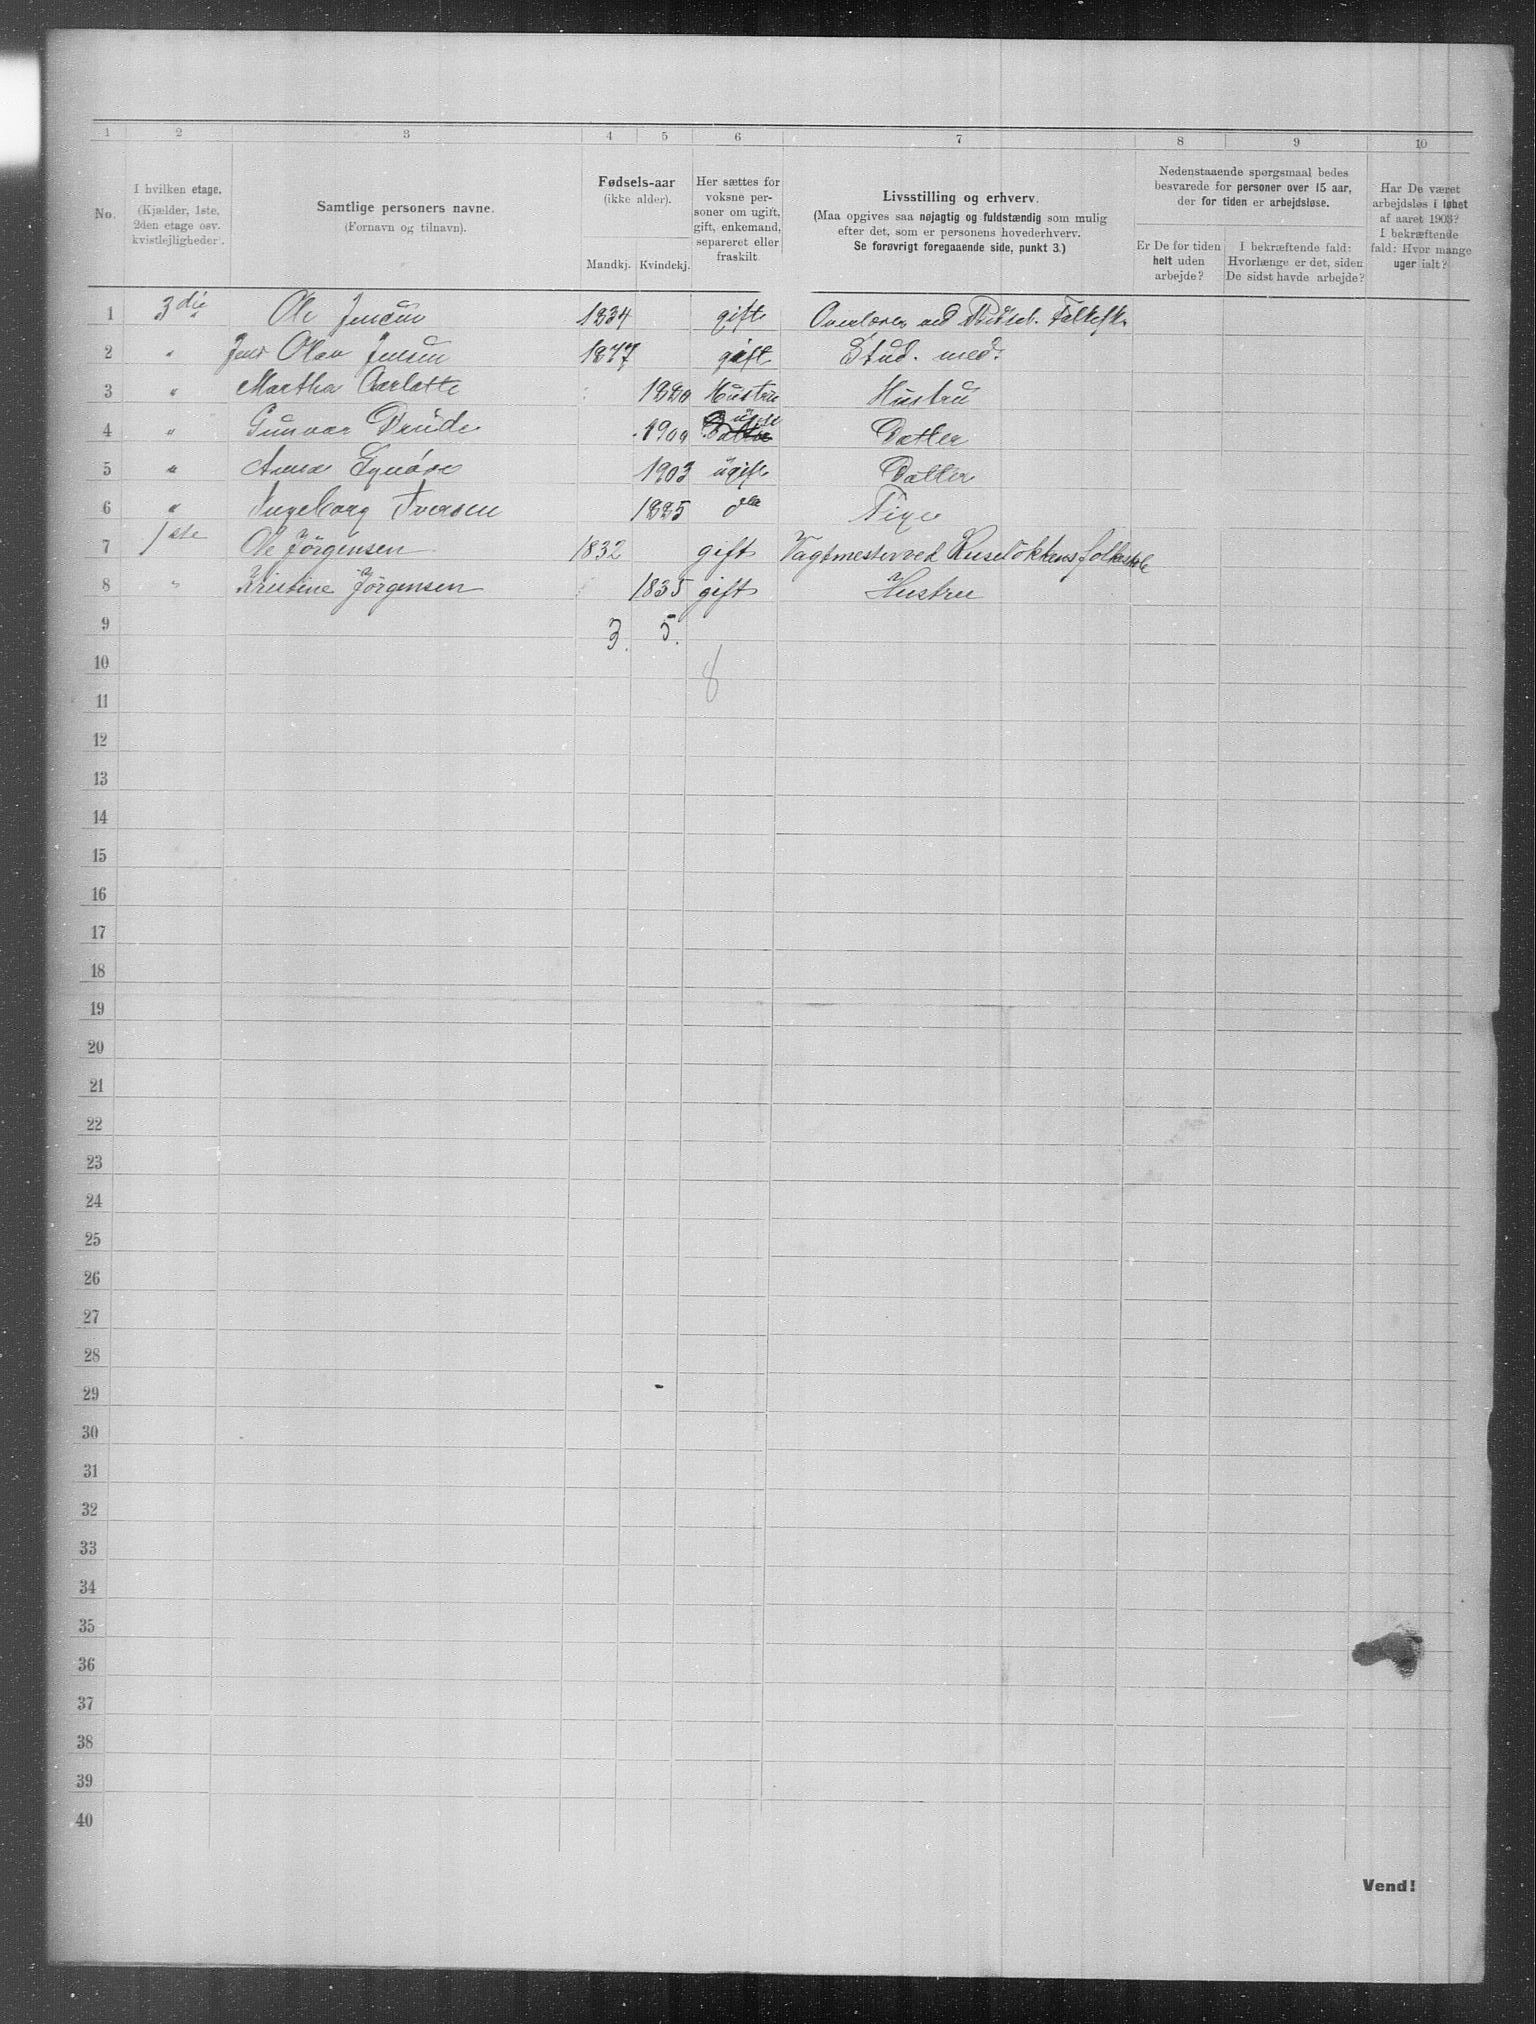 1 2 3 4 5 6 7 8 9 10
No.
I hvilken etage.
(Kjælder, 1ste,
2den etage osv.
kvistlejligheder).
Samtlige personers navne.
(Fornavn og tilnavn).
Fødsels-aar
(ikke alder).
Mandkj. Kvindekj.
Her sættes for
voksne per-
soner om ugift,
gift, enkemand,
separeret eller
fraskilt
Livsstilling og erhverv.
(Maa opgives saa nøjagtig og fuldstændig som mulig
efter det, som er personens hovederhverv.
Se forøvrigt foregaaende side, punkt 3.)
Nedenstaaende spørgsmaal bedes
besvarede for personer over 15 aar,
der for tiden er arbejdsløse.
Er De for tiden
helt uden
arbejde?
I bekræftende fald:
Hvorlænge er det, siden
De sidst havde arbejde?
Har De været
arbejdsløs i løbet
af aaret 1903?
I bekræftende
fald: Hvor mange
uger ialt?
1 3die Ole Jensen 1834 gift Overlærer ved Folkesk.
2 " Jens Olav Jensen 1877 gift Stud. med.
3 " Martha 1880 Hustru Hustru
4 " Gunvor 1900 ugift Datter
5 " Anna 1903 ugift Datter
6 " Ingeborg Iversen 1885 Pige
7 1ste Ole Jørgensen 1832 gift Vagtmester ved Ruseløkkens folkeskole
8 " Kristine Jørgensen 1835 gift Hustru
9 3. 5.
10 8
11
12
13
14
15
16
17
18
19
20
21
22
23
24
25
26
27
28
29
30
31
32
33
34
35
36
37
38
39
40
Vend!